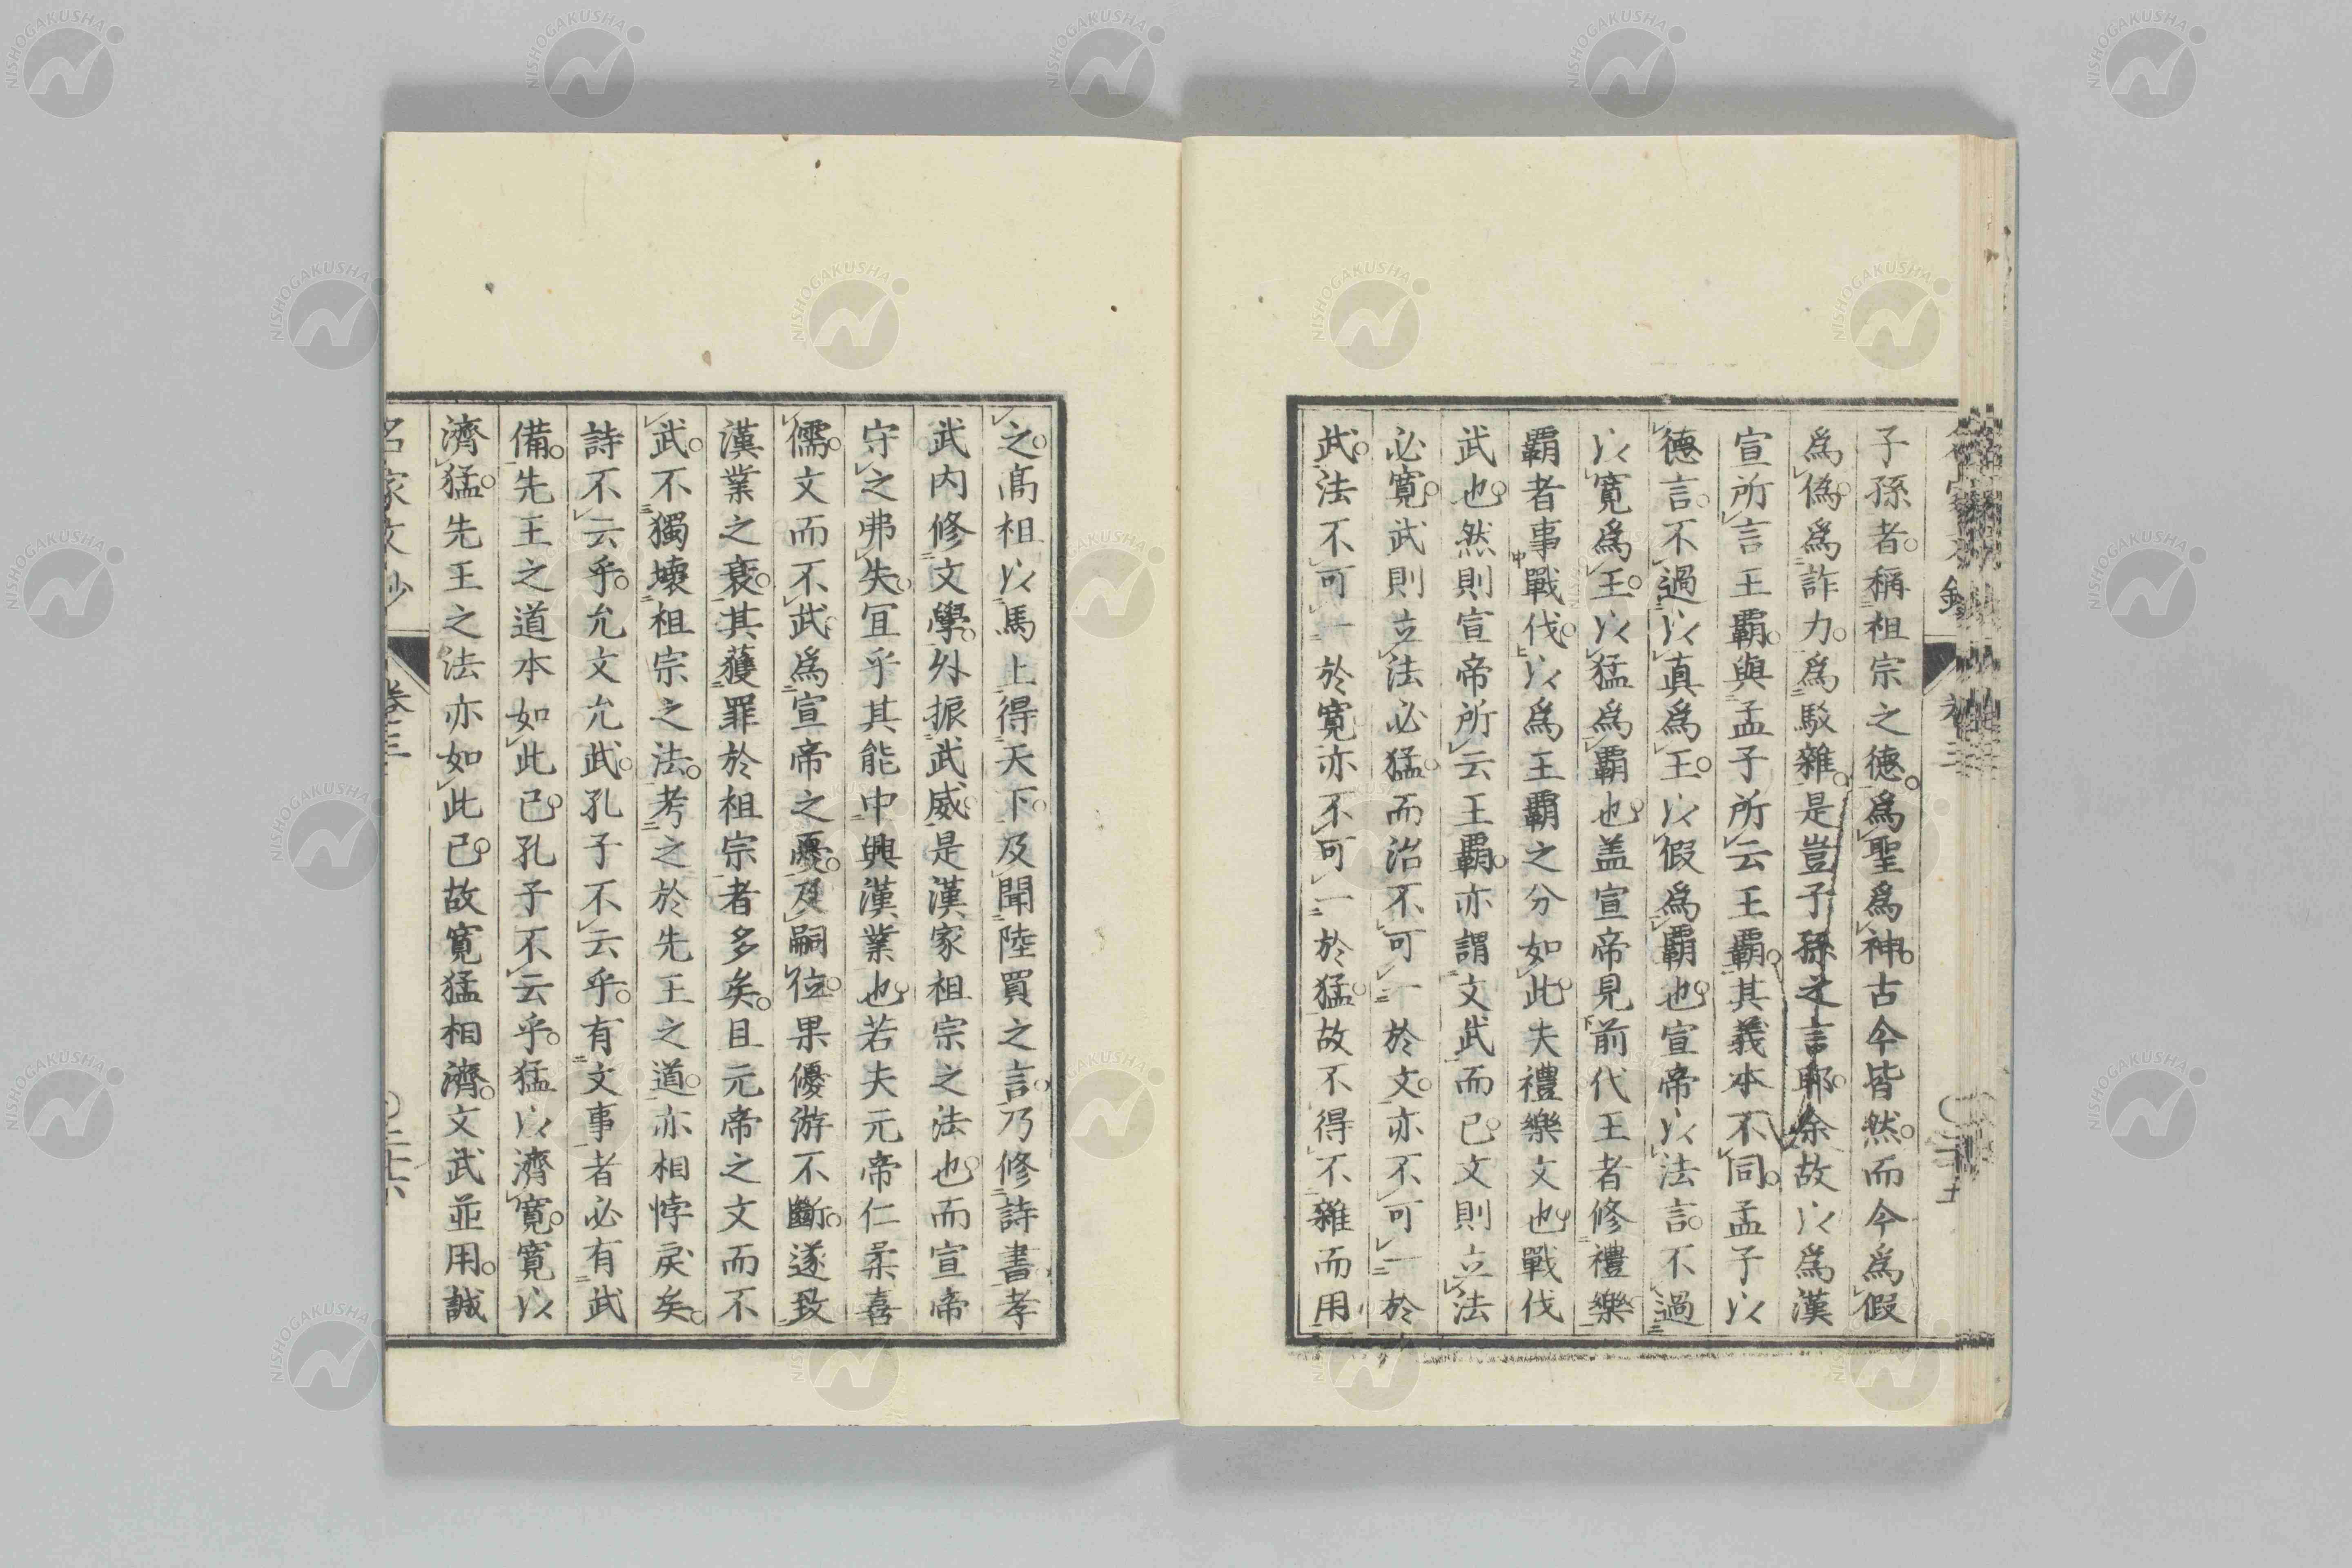 子孫者稱祖宗之德爲聖爲神古今皆然而今爲假
爲僞爲詐力爲駁雜是豈子孫之言耶余故以爲漢
宣所言王覇與孟子所云王覇其義本不同孟子以
德言不過以真爲王以假爲覇也宣帝以法言不過
以寛爲王以猛爲覇也盖宣帝見前代王者修禮樂
覇者事戰伐以爲王覇之分如此夫禮樂文也戰伐
武也然則宣帝所云王覇亦謂文武而已文則立法
必寛武則立法必猛而治不可一於文亦不可一於
武法不可一於寛亦不可一於猛故不得不雜而用
之髙祖以馬上得天下及聞陸買之言乃修詩書孝
武内修文學外振武威是漢家祖宗之法也而宣帝
守之弗失冝乎其能中興漢業也若夫元帝仁柔喜
儒文而不武爲宣帝之憂及嗣位果優游不斷遂致
漢業之衰其獲罪於祖宗者多矣且元帝之文而不
武不獨壊祖宗之法考之於先王之道亦相悖戾矣
詩不云乎允文允武孔子不云乎有文事者必有武
備先王之道本如此已孔子不云乎猛以濟寛寛以
濟猛先王之法亦如此已故寛猛相濟文武並用誠
名家文抄 卷三 〇二十六
NISHOGAKUSHA